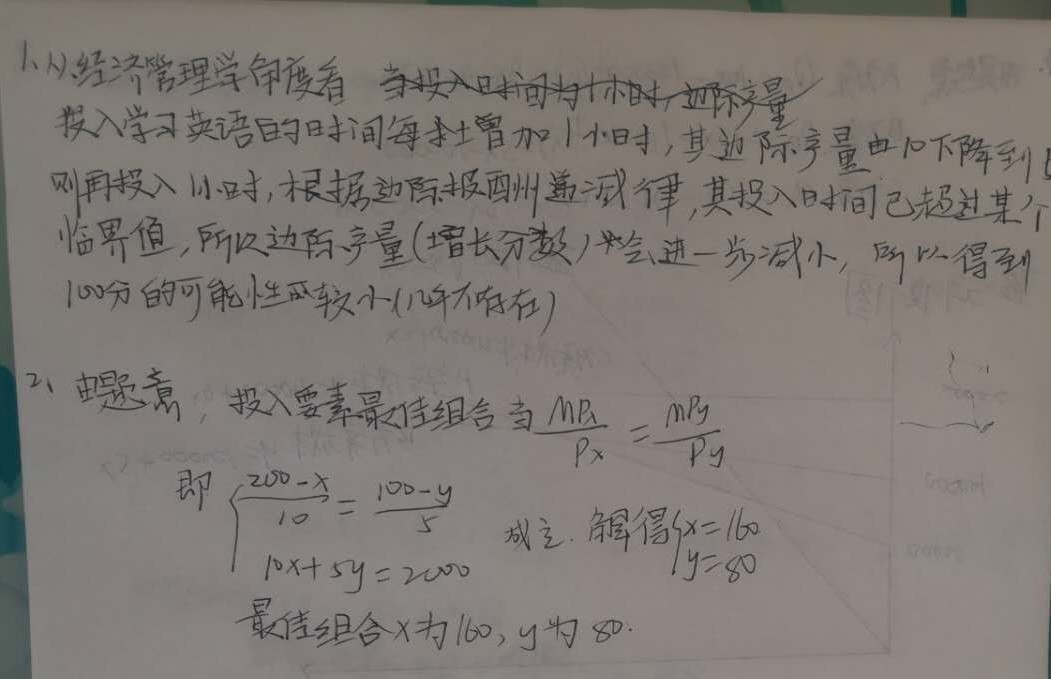 1、从经济管理学角度看 当投入时间为1小时,边际产量
投入学习英语的时间每增加1小时,其边际产量由10下降到
则再投入1小时,根据边际报酬递减律,其投入时间已超过某个
临界值,所以边际产量(增长分数)会进一步减小,所以得到
100分的可能性较小(几乎不存在)
2、由题意,投入要素最佳组合当 MPx/Px = MPy/Py
即 { (200-x)/10 = (100-y)/5
10x+5y=2000 成立. 解得{x=160
y=80
最佳组合x为160,y为80.